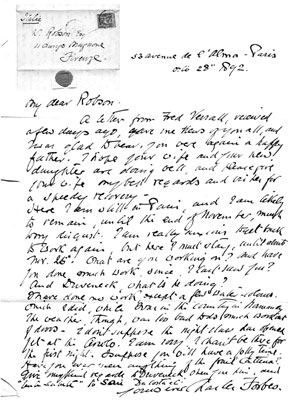 Italie
W. Robson Esq
Lungo Mugnone
Firenze
53 avenue de l'Alma - Paris
Oct 28th 1892.
My dear Robson -
A letter from Fred received
a few days ago, gave me news of you all, and
I was glad to hear, you were again a happy
father. I hope your wife and your new
daughter are doing well, and please give
your wife my best regards and wishes for
a speedy recovery -
Here I am still in Paris, and I am likely
to remain, until the end of November, much
to my disgust. I am really anxious to get back
to work again, but here I must stay, until about
Nov. 26th. What are you working on? and have
you done much work, since I last saw you?
And Duveneck, what is he doing?
I have done no work, except a few water colours,
which I did, while I was in the country in
The weather, though, was too bad to do much work out
of doors - I don't suppose the night class has opened
yet at the Circolo. I am sorry I can't be there for
the first night. I suppose you will have a jolly time.
Have you ever seen anything of the
Give my kind regards to Duveneck when you see him, and
to
Yours ever Charles Forbes.